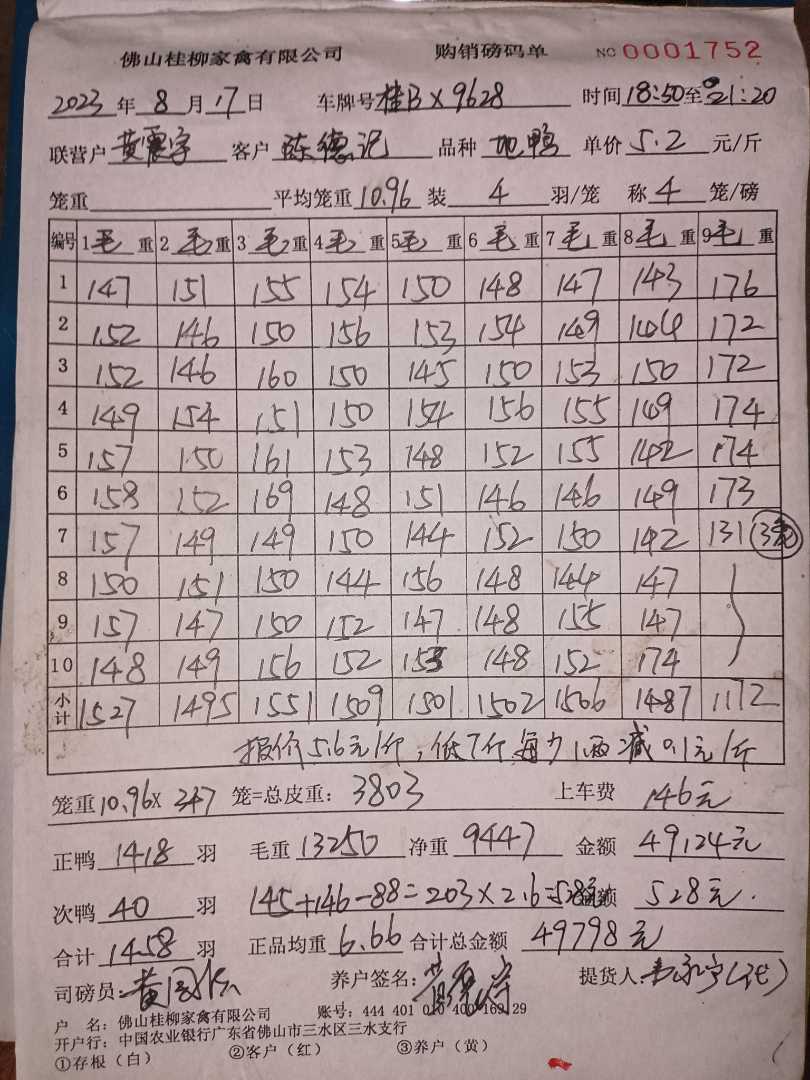 佛山桂柳家禽有限公司 购销磅码单 NO 0001752
2023 年 8 月 17 日 车牌号 桂B×9628 时间 18:50 至 21:20
联营户 黄震宇 客户 陈德记 品种 地鸭 单价 5.2 元/斤
笼重 平均笼重 10.96 装 4 羽/笼 称 4 笼/磅
编号 1 毛 重 2 毛 重 3 毛 重 4 毛 重 5 毛 重 6 毛 重 7 毛 重 8 毛 重 9 毛 重
1 147 151 155 154 150 148 147 143 176
2 152 146 150 156 153 154 149 144 172
3 152 146 160 150 145 150 153 150 172
4 149 154 151 150 154 156 155 149 174
5 157 150 161 153 148 152 155 142 174
6 158 152 169 148 151 146 146 149 173
7 157 149 149 150 144 152 150 142 131
8 150 151 150 144 156 148 144 147
9 157 147 150 152 147 148 155 147
10 148 149 156 152 153 148 152 174
小计 1527 1495 1551 1509 1501 1502 1506 1487 1172
报价5.6元/斤,低7斤每少1两减0.1元/斤
笼重 10.96× 347 笼=总皮重: 3803 上车费 146元
正鸭 1418 羽 毛重 13250 净重 9447 金额 49124元
次鸭 40 羽 145+146-88=203×2.6=528元 金额 528元.
合计 1458 羽 正品均重 6.66 合计总金额 49798元
司磅员: 黄 养户签名: 黄震宇 提货人:
户 名: 佛山桂柳家禽有限公司 账号: 444 401 010 400 169 29
开户行: 中国农业银行广东省佛山市三水区三水支行
①存根(白) ②客户(红) ③养户(黄)